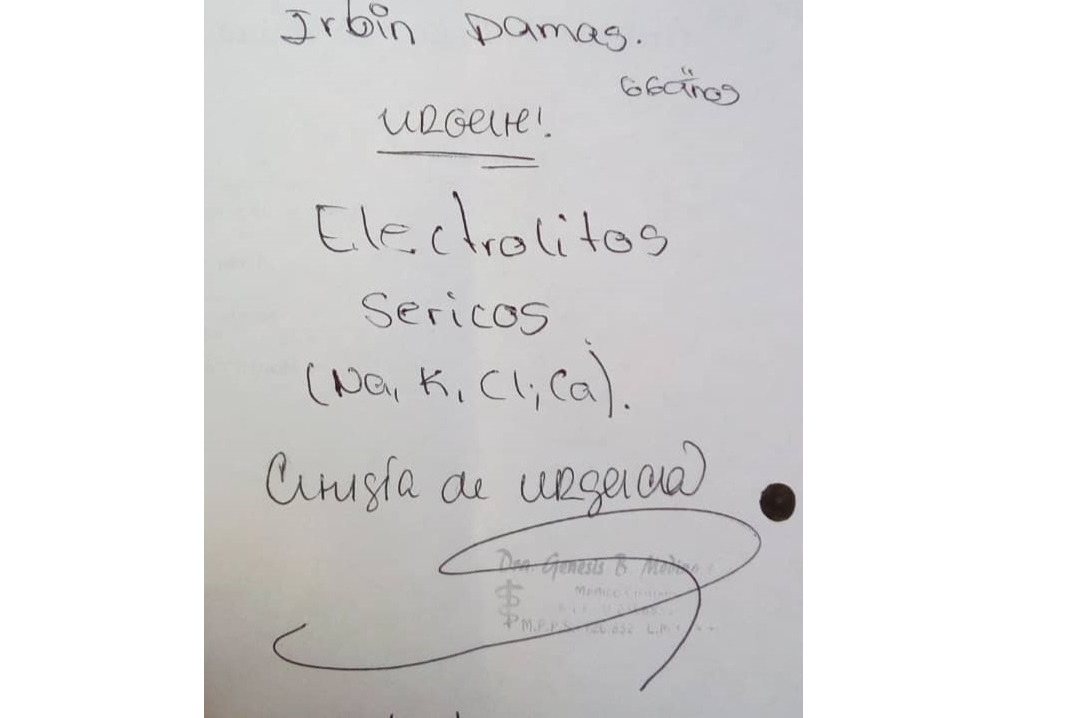 Irbin Damas.
66 años
URGente!
Electrolitos
Sericos
(Na, K, Cl, Ca).
Cirugía de urgencia
Dra. Genesis B. Medina
M.P.P.S.